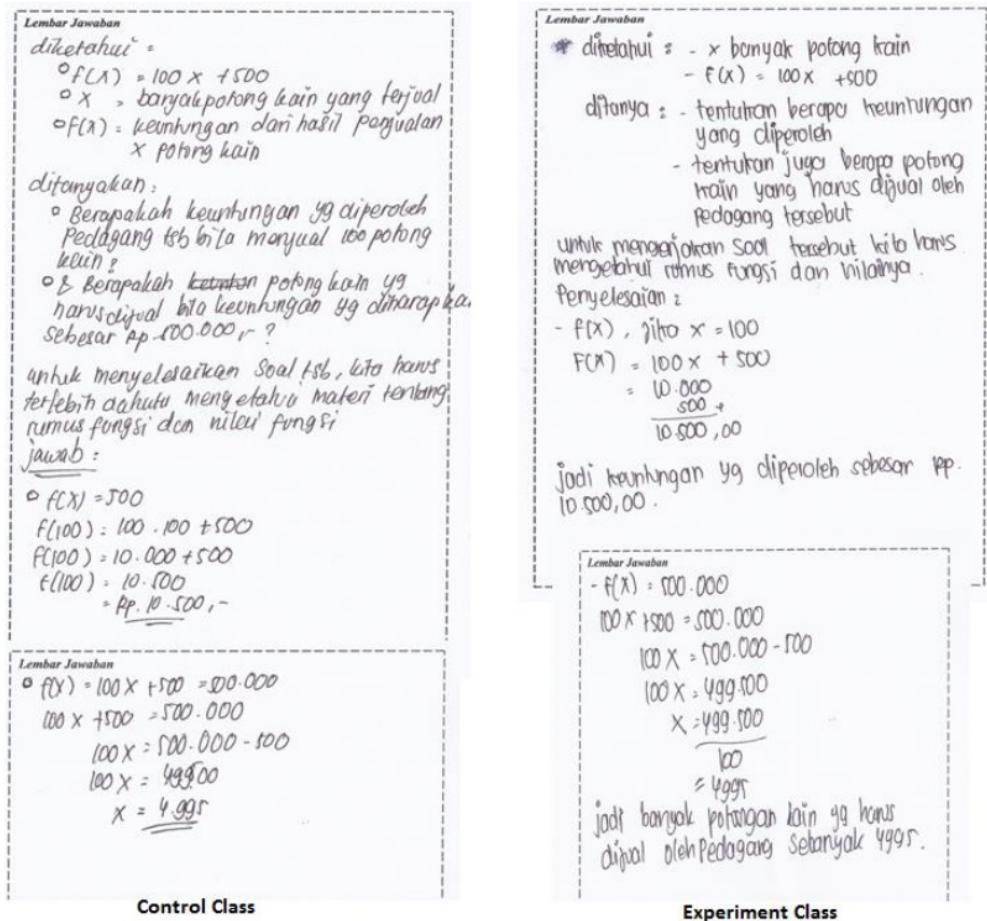 Lembar Jawaban
diketahui =
f(x) = 100 x + 500
x = banyak potong kain yang terjual
f(x) = keuntungan dari hasil penjualan
x potong kain
ditanyakan :
Berapakah keuntungan yg diperoleh
Pedagang tsb bila menjual 100 potong
kain ?
Berapakah potong kain yg
harus dijual bila keuntungan yg diharapkan
sebesar Rp 500.000,- ?
untuk menyelesaikan soal tsb, kita harus
terlebih dahulu mengetahui materi tentang
rumus fungsi dan nilai fungsi
jawab :
f(x) = 500
f(100) = 100 . 100 + 500
f(100) = 10.000 + 500
f(100) = 10.500
= Rp. 10.500,-
Lembar Jawaban
f(x) = 100 x + 500 = 500.000
100 x + 500 = 500.000
100 x = 500.000 - 500
100 x =
x = 4.995
Control Class
Lembar Jawaban
* diketahui : - x banyak potong kain
- f(x) = 100 x + 500
ditanya : - tentukan berapa keuntungan
yang diperoleh
- tentukan juga berapa potong
kain yang harus dijual oleh
Pedagang tersebut
untuk mengerjakan soal tersebut kita harus
mengetahui rumus fungsi dan nilainya.
Penyelesaian :
- f(x), jika x = 100
F(x) = 100 x + 500
= 10.000
500 +
10.500,00
jadi keuntungan yg diperoleh sebesar Rp.
10.500,00.
Lembar Jawaban
- f(x) = 500.000
100 x + 500 = 500.000
100 x = 500.000 - 500
100 x = 499.500
x = 499.500
100
= 4995
jadi banyak potongan kain yg harus
dijual oleh Pedagang sebanyak 4995.
Experiment Class